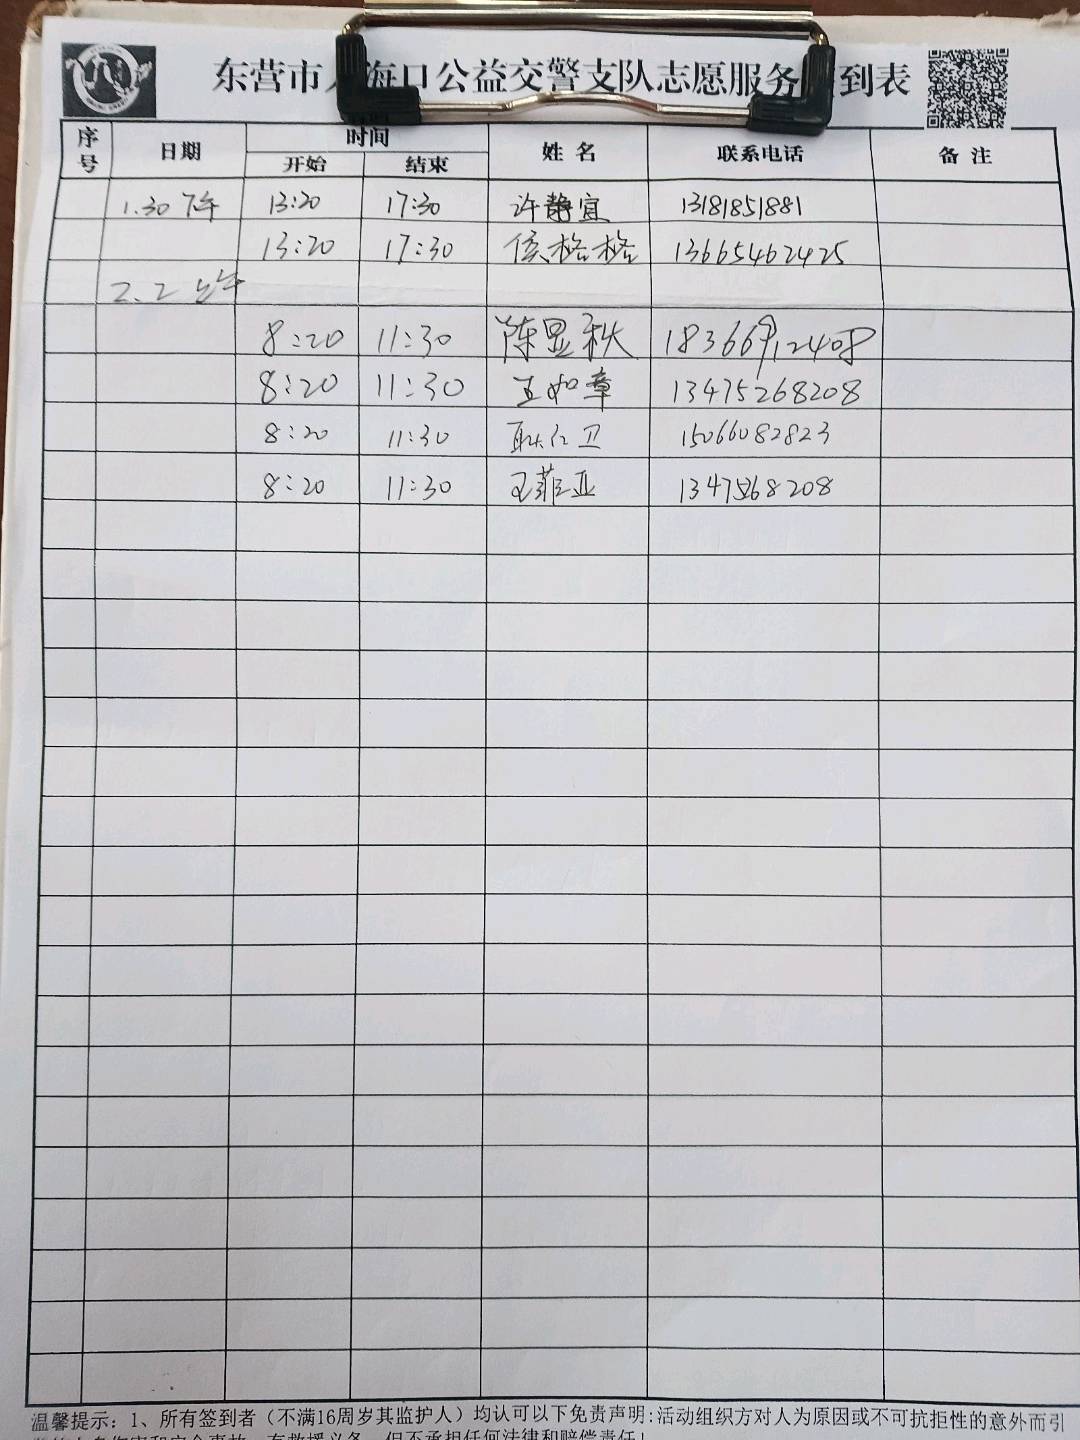 东营市 海口公益交警支队志愿服务 到表
序号 日期 时间 开始 结束 姓名 联系电话 备注
1.30下午 13:20 17:30 许静宜 13181851881
13:20 17:30 侯格格 13665462425
2.2上午
8:20 11:30 陈显秋 18366912408
8:20 11:30 王如章 13475268208
8:20 11:30 耿仁卫 15066082823
8:20 11:30 王菲亚 13475268208
温馨提示：1、所有签到者（不满16周岁其监护人）均认可以下免责声明：活动组织方对人为原因或不可抗拒性的意外而引
有救援义务，但不承担任何法律和赔偿责任！